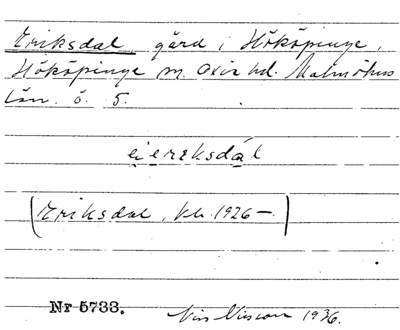 Eriksdal, gård i Hököpinge,
Hököpinge sn. Oxie hd. Malmöhus
län. ö. 5.
eiereksdál
(Eriksdal, kb. 1926-)
Nr 5733.
Nils Nilsson 1936.